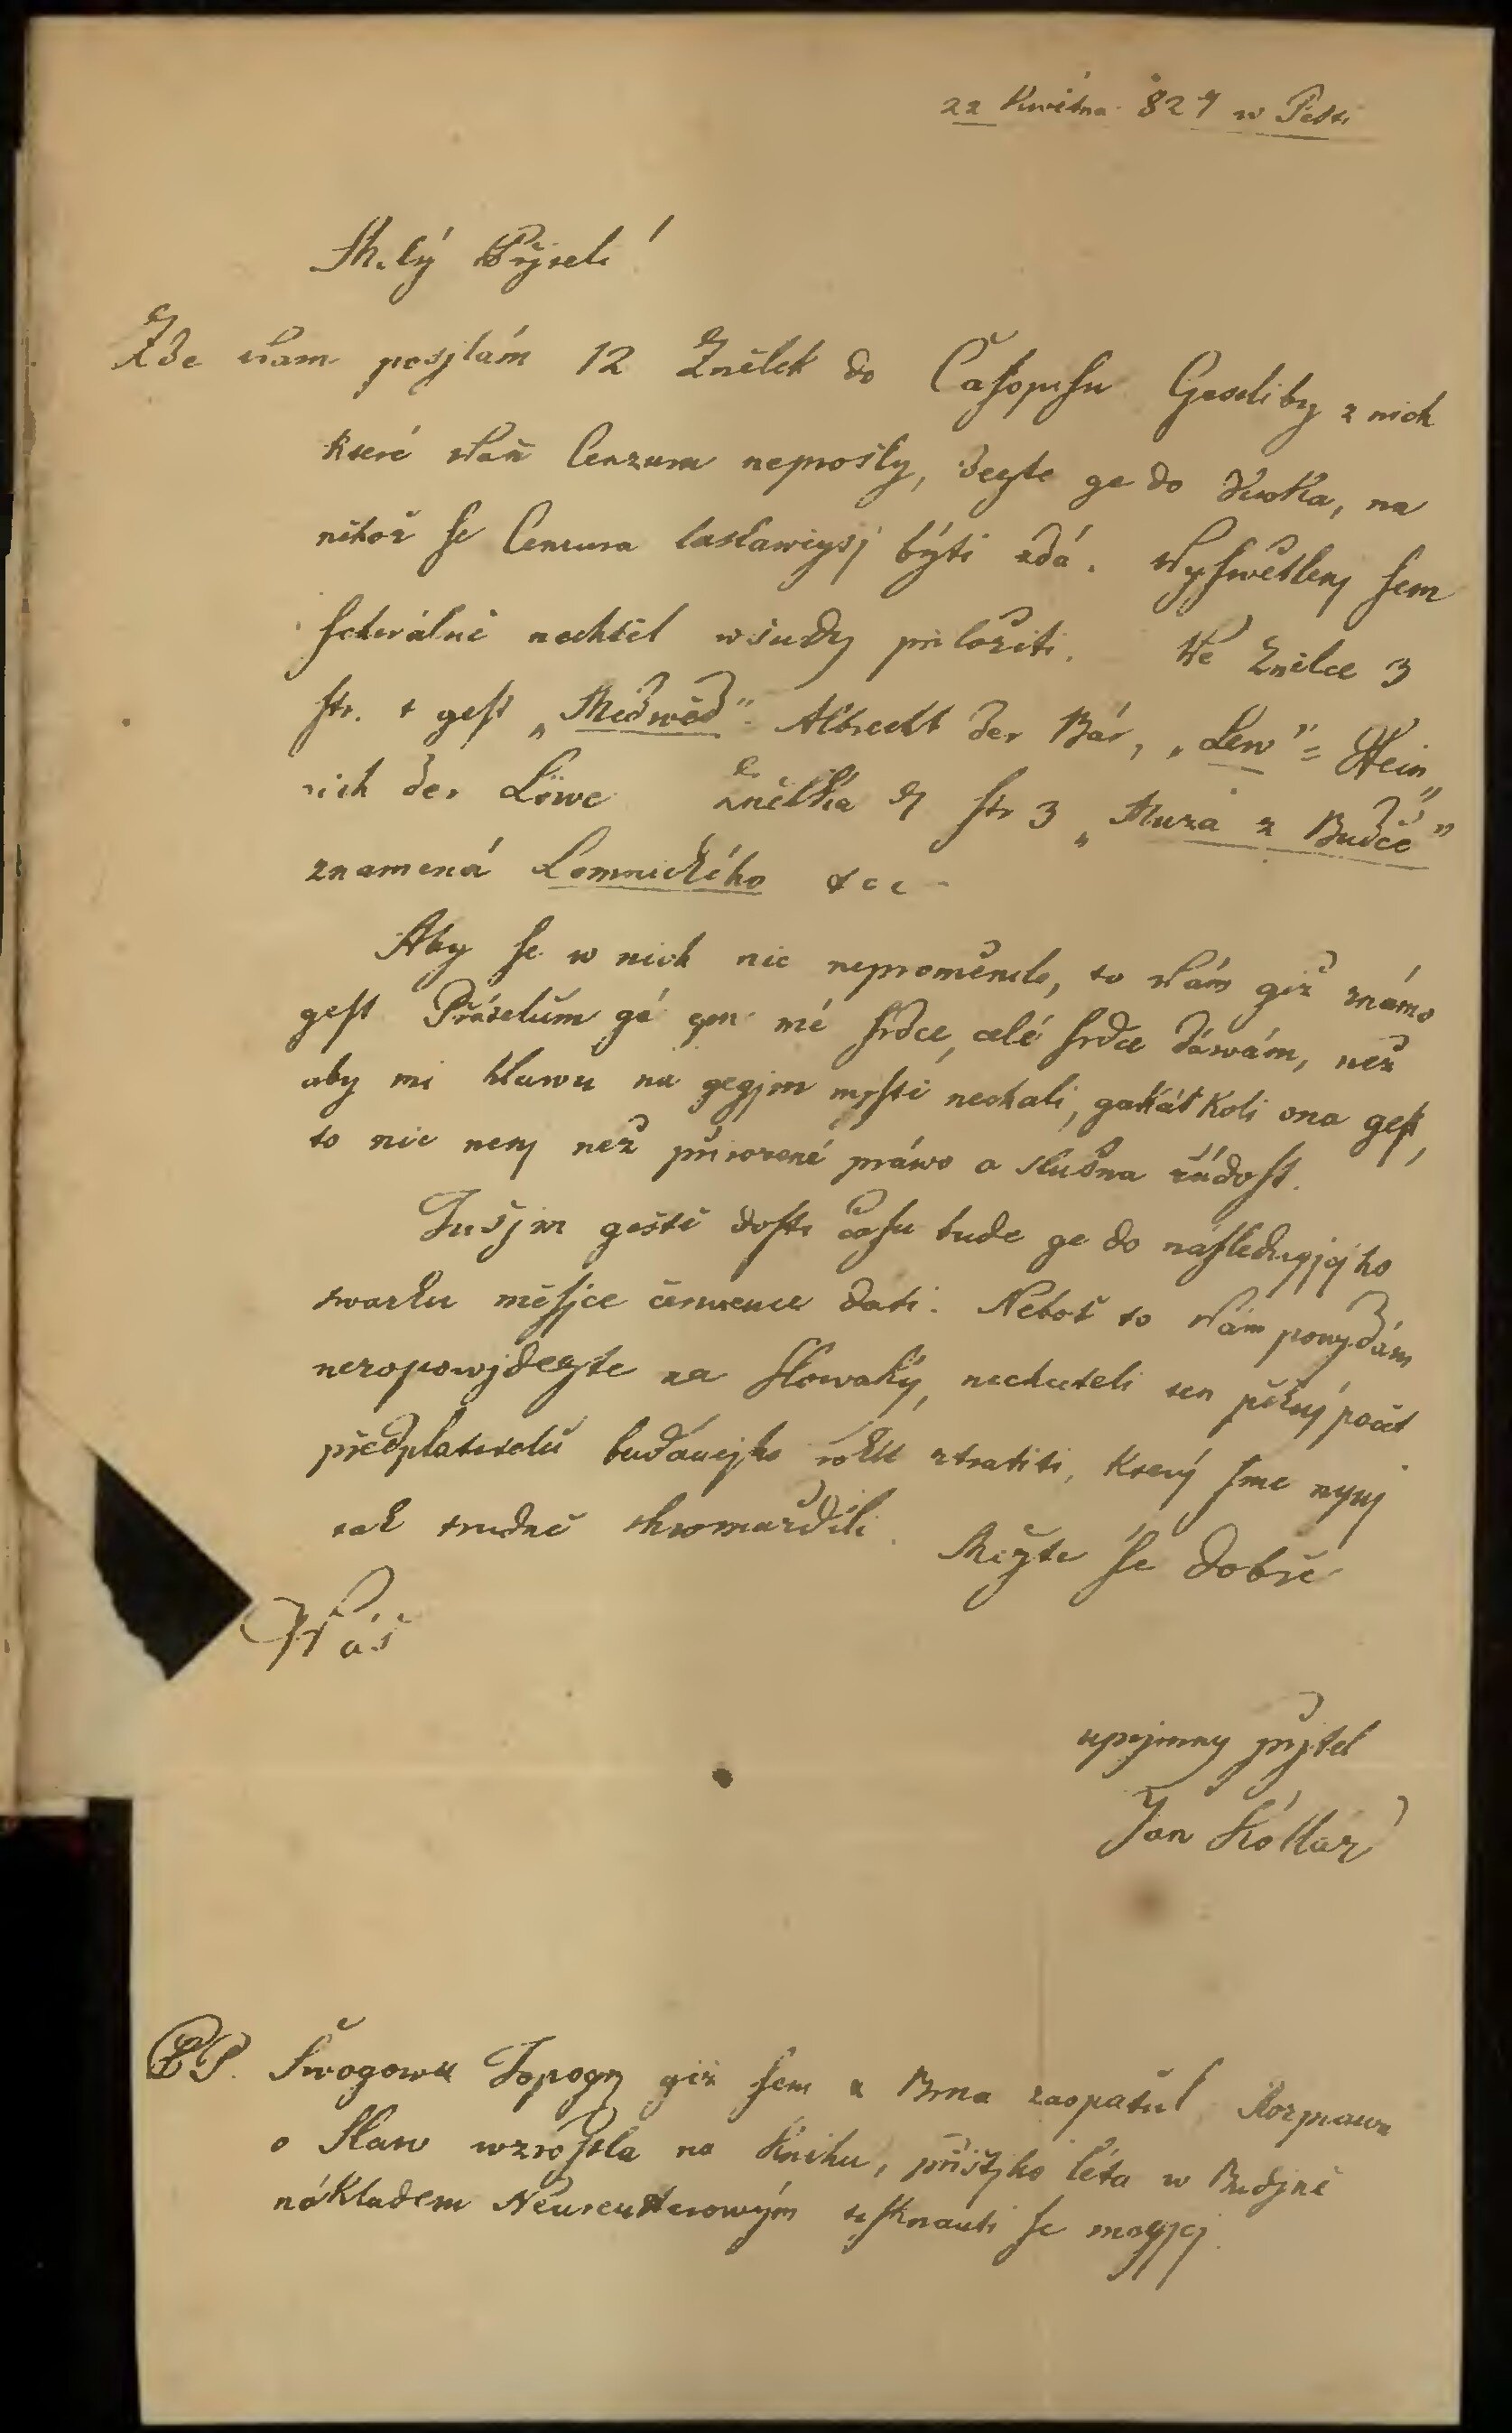 22 Kwětna 827 w Pešti
Milý Přjteli!
Zde Wam posjlám 12 Znělek do Časopisu Gestliby z nich
které Waši Censuru neprošly, degte ge do Kroka, na
něhož se Censura laskawěgšj býti zdá. Wyswětlenj sem
schwálně nechtěl wšudy přiložiti. We Znělce 3
str. 1 gest „Medwěd" Albrecht der Bär, „Lew" = Hein„
rich der Löwe Znělka 7 str 3 „Muza z Budče"
znamená Lomnického &cc
Aby se w nich nic neproměnilo, to Wám giž známo
gest Přátelům gá gen mé srdce, celé srdce dáwám, než
aby mi hlawu na gegjm mjstě nechali, gakákkoli ona gest,
to nic nenj než přirozené práwo a slušna žádost.
Tušjm geště dosti času bude ge do následugjcjho
swazku měsjce čerwence dati. Neboť to Wám powjdám
nezapowjdegte na Slowáky, nechceteli ten pěkný počet
předplatitelů budaucjho roku ztratiti, který sme nynj
tak trudně shromaždili. Mějte se dobře
Wáš
upřjmny přjtel
Jan Kollár
PS. Šwogowu Topogr giž sem z Brna zaopatřil Rozprawa
o Slaw wzrostla na Knihu, přjštjho léta w Budjně
nákladem Neureutterowým tisknauti se magjcj.